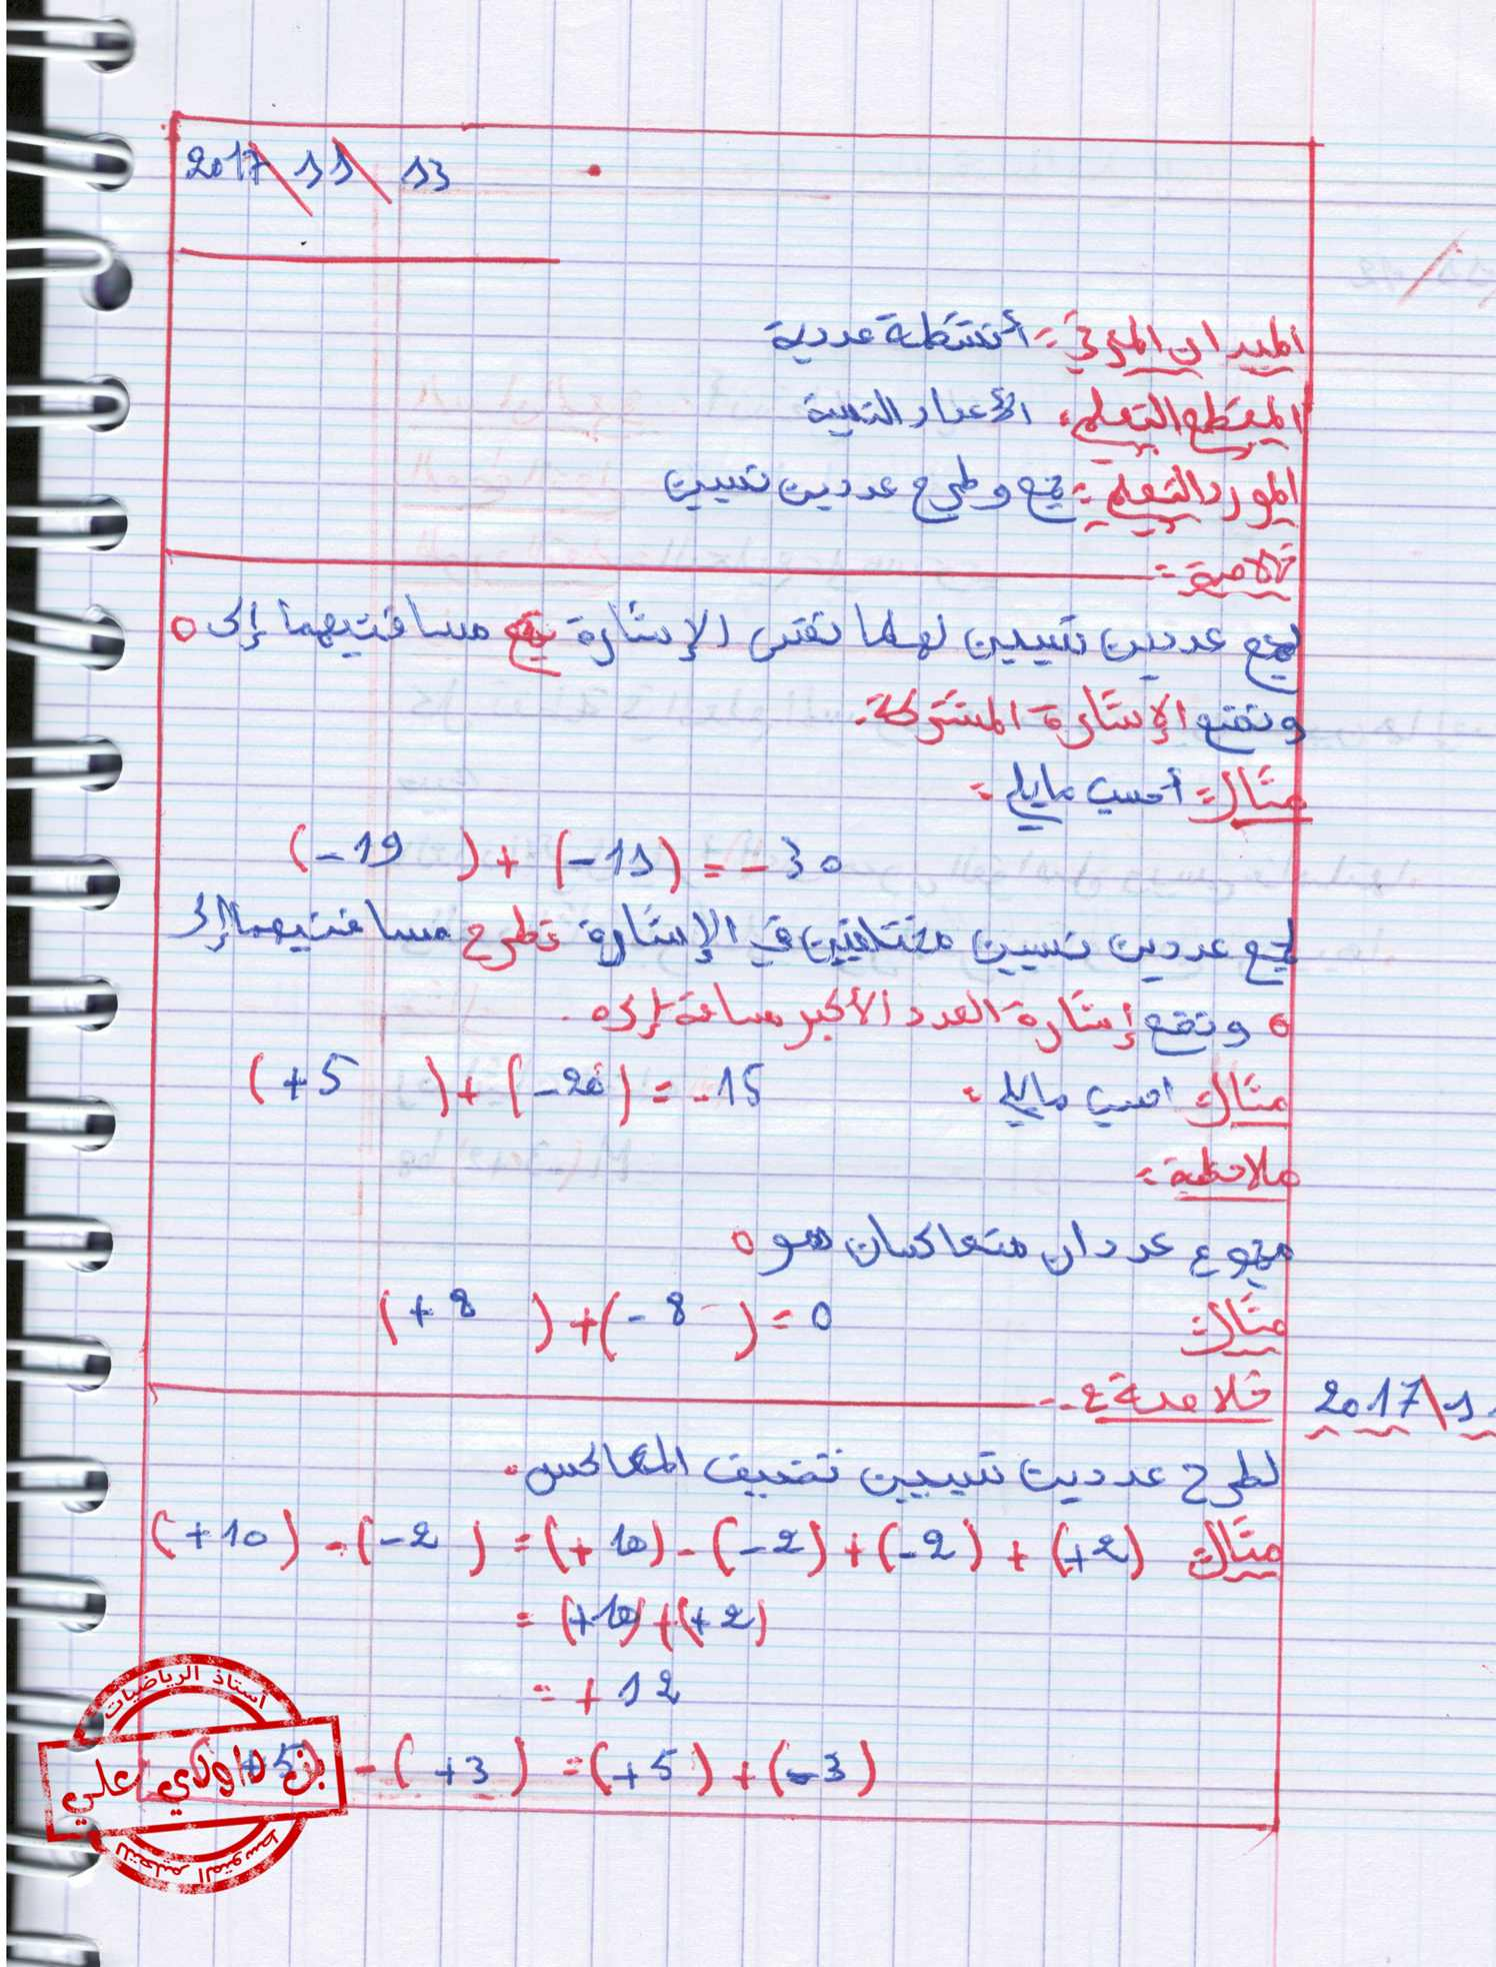 2017 \ 11 \ 13
الميدان المعرفي: أنشطة عددية
المقطع التعلمي: الأعداد النسبية
المورد التعلمي: جمع وطرح عددين نسبيين
خلاصة:
لجمع عددين نسبيين لهما نفس الإشارة نجمع مسافتيهما إلى 0
ونضع الإشارة المشتركة.
مثال: أحسب مايلي:
(-19) + (-11) = -30
لجمع عددين نسبيين مختلفين في الإشارة نطرح مسافتيهما إلى
0 ونضع إشارة العدد الأكبر مسافة إلى 0.
مثال: احسب مايلي: (+5) + (-20) = -15
ملاحظة:
مجموع عددان متعاكسان هو 0
مثال: (+8) + (-8) = 0
خلاصة: 2017\11
لطرح عددين نسبيين نضيف المعاكس.
مثال: (+10) - (-2) = (+10) - (-2) + (-2) + (+2)
= (+10) + (+2)
= +12
(+5) - (+3) = (+5) + (-3)
أستاذ الرياضيات
بن داودي علي
للتعليم المتوسط